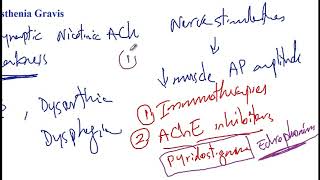 sthenia Gravis
ynaptic Nicotinic ACh
eakness
①
, Dysarthia
Dysphagia
Nerve stimulates
↓ muscle AP amplitude
① Immunotherapies
② AChE inhibitors
Pyridostigmine
Edrophonium